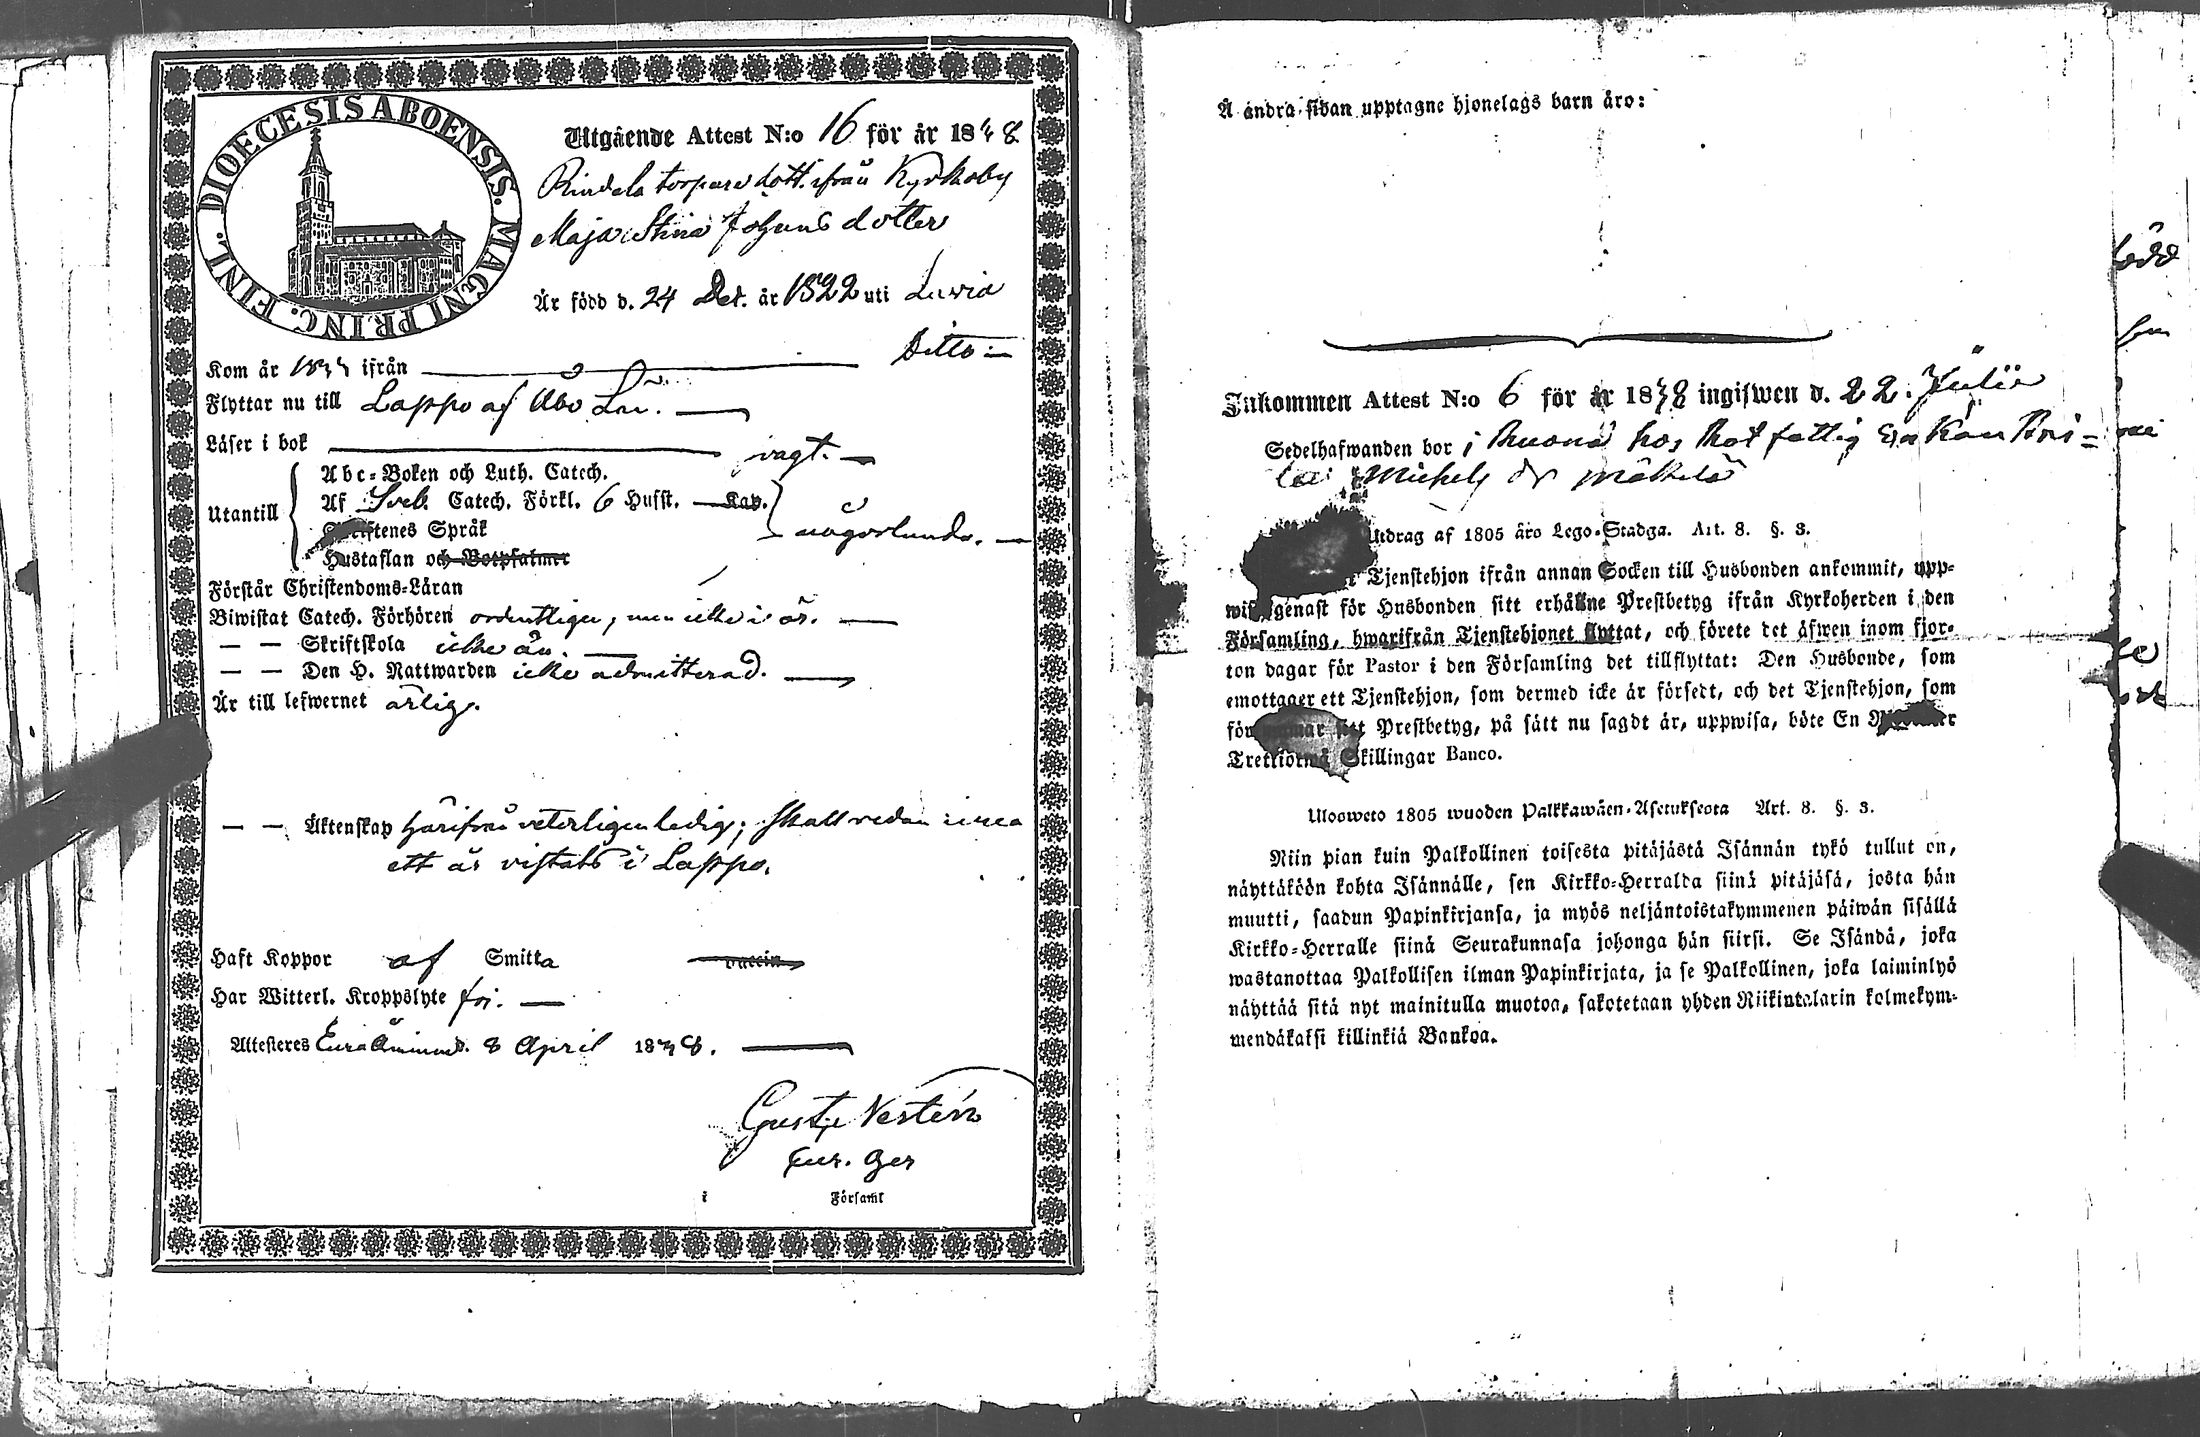 DIOECESIS ABOENSIS. MAGNI PRINC. FINL.
Utgående Attest N:o 16 för år 1848
torpare dott. ifrån Kyrkoby
Maja Stina Johans dotter
Är född d. 24 Dec. år 1822 uti Luvia
Kom år ifrån Ditto
Flyttar nu till Lappo af Åbo Län.
Läser i bok svagt.
Utantill
Abc-Boken och Luth. Catech.
Af Sveb. Catech. Förkl. 6 Hufst. Kap.
någorlunda.
Skriftenes Språk
Hustaflan och Botpsalmer
Förstår Christendoms-Läran
Biwistat Catech. Förhören ordentligen, men icke i år.
— — Skriftskola icke än.
— — Den H. Nattwarden icke admitterad.
Är till lefwernet ärlig.
— — Äktenskap härifrån veterligen ledig; skall redan inea
ett år vistats i Lappo.
Haft Koppor af Smitta vaccin
Har Witterl. Kroppslyte fri.
Attesteres Eura Åminne d. 8 April 1848.
Gust. Vestén
i Församl
Å andra sidan upptagne hjonelags barn äro:
Inkommen Attest N:o 6 för år 1848 ingifwen d. 22 Julii
Sedelhafwanden bor i hos
Michels dr Mäkelä
Utdrag af 1805 års Lego-Stadga. Art. 8. §. 3.
Tjenstehjon ifrån annan Socken till Husbonden ankommit, upp-
genast för Husbonden sitt erhållne Prestbetyg ifrån Kyrkoherden i den
Församling, hwarifrån Tjenstehjonet flyttat, och förete det äfwen inom fjor-
ton dagar för Pastor i den Församling det tillflyttat: Den Husbonde, som
emottager ett Tjenstehjon, som dermed icke är försedt, och det Tjenstehjon, som
sitt Prestbetyg, på sätt nu sagdt är, uppwisa, böte En
Trettiotwå Skillingar Banco.
Ulosweto 1805 wuoden Palkkawäen-Asetuksesta Art. 8. §. 3.
Niin pian kuin Palkollinen toisesta pitäjästä Isännän tykö tullut on,
näyttäköön kohta Isännälle, sen Kirkko-Herralda siinä pitäjäsä, josta hän
muutti, saadun Papinkirjansa, ja myös neljäntoistakymmenen päiwän sisällä
Kirkko-Herralle siinä Seurakunnasa johonga hän siirsi. Se Isändä, joka
wastanottaa Palkollisen ilman Papinkirjata, ja se Palkollinen, joka laiminlyö
näyttää sitä nyt mainitulla muotoa, sakotetaan yhden Riikintalarin kolmekym-
mendäkaksi killinkiä Bankoa.